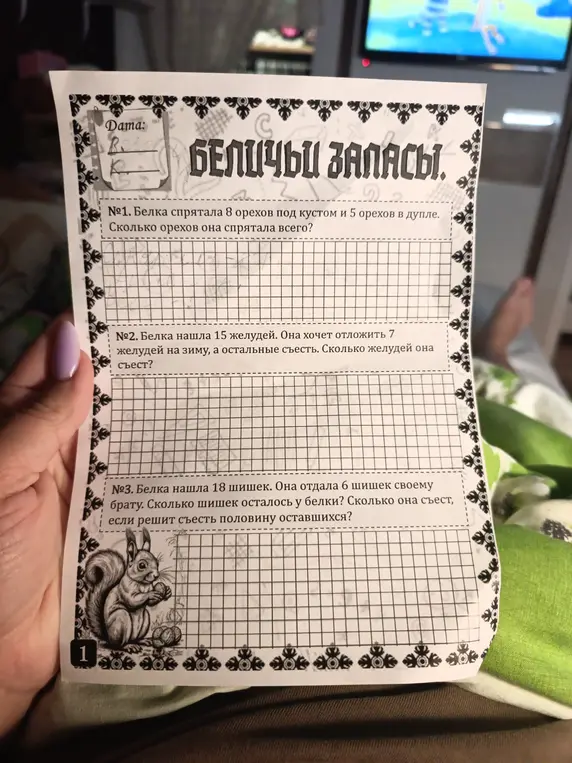 Дата:
БЕЛИЧЬИ ЗАПАСЫ.
№1. Белка спрятала 8 орехов под кустом и 5 орехов в дупле.
Сколько орехов она спрятала всего?
№2. Белка нашла 15 желудей. Она хочет отложить 7
желудей на зиму, а остальные съесть. Сколько желудей она
съест?
№3. Белка нашла 18 шишек. Она отдала 6 шишек своему
брату. Сколько шишек осталось у белки? Сколько она съест,
если решит съесть половину оставшихся?
1